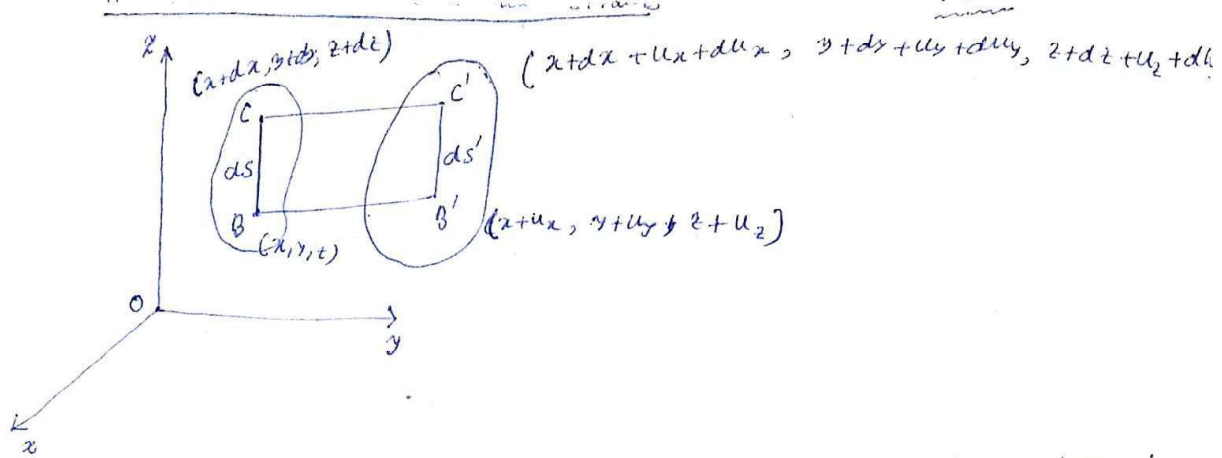 z
(x+dx, y+dy, z+dz)
(x+dx+ux+dux, y+dy+uy+duy, z+dz+uz+du
C
C'
ds
ds'
B
B'
(x,y,z)
(x+ux, y+uy, z+uz)
O
y
x